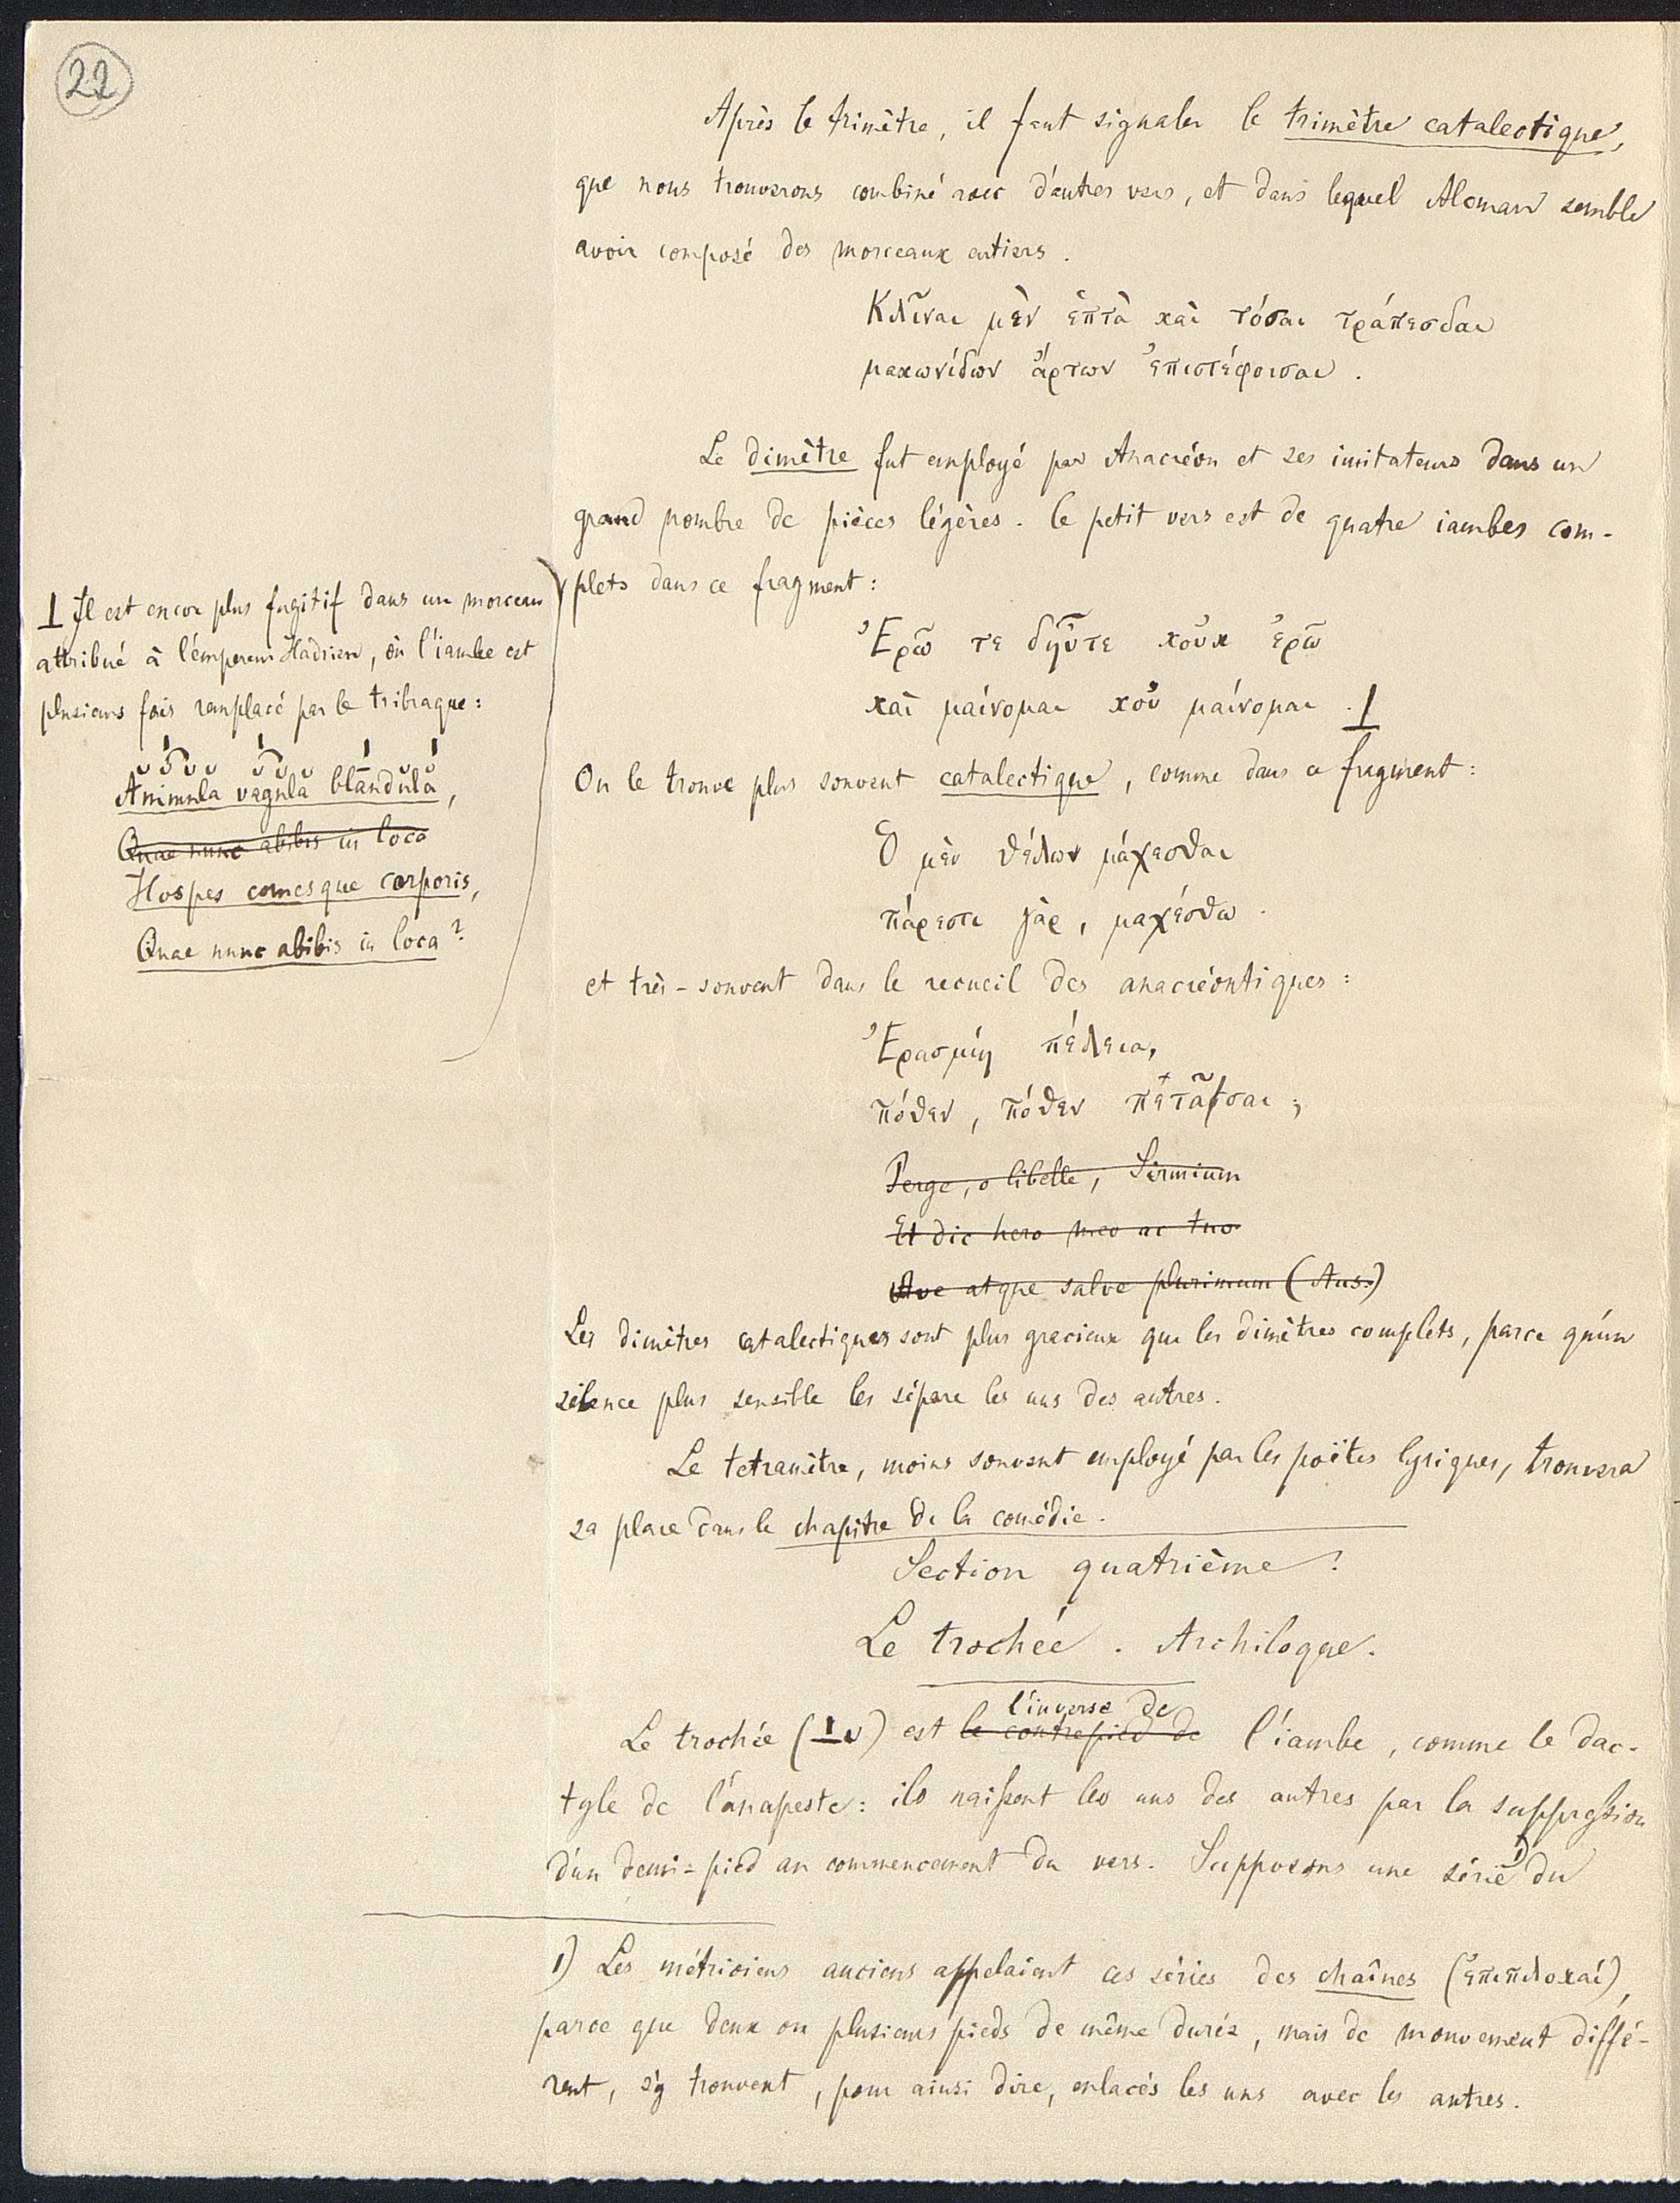 22
Après le trimètre, il faut signaler le trimètre catalectique,
que nous trouverons combiné avec d'autres vers, et dans lequel Alcman semble
avoir composé des morceaux entiers.
Κλῖναι μὲν ἑπτὰ καὶ τόσαι τράπεσδαι
μακωνίδων ἄρτων ἐπιστέφοισαι.
Le dimètre fut employé par Anacréon et ses imitateurs dans un
grand nombre de pièces légères. Le petit vers est de quatre iambes com-
plets dans ce fragment:
Ἐρῶ τε δηὖτε κοὐκ ἐρῶ
καὶ μαίνομαι κοὐ μαίνομαι.
On le trouve plus souvent catalectique, comme dans ce fragment:
Ὁ μὲν θέλων μάχεσθαι
πάρεστι γὰρ, μαχέσθω.
et très-souvent dans le recueil des anacréontiques:
Ἐρασμίη πέλεια,
πόθεν, πόθεν πετᾶσαι;
Perge, o libelle, Sirmium
Et dic hero meo ac tuo
Ave atque salve plurimum (Aus.)
Les dimètres catalectiques sont plus gracieux que les dimètres complets, parce qu'un
silence plus sensible les sépare les uns des autres.
Le tetramètre, moins souvent employé par les poëtes lyriques, trouvera
sa place dans le chapitre de la comédie.
Section quatrième.
Le trochée. Archiloque.
l'inverse de
Le trochée (–́ ᴗ) est le contrepied de l'iambe, comme le dac-
tyle de l'anapeste: ils naissent les uns des autres par la suppression
d'un demi-pied au commencement du vers. Supposons une série 1) du
1) Les métriciens anciens appelaient ces séries des chaînes (ἐπιπλοκαί),
parce que deux ou plusieurs pieds de même durée, mais de mouvement diffé-
rent, s'y trouvent, pour ainsi dire, enlacés les uns avec les autres.
Il est encore plus fugitif dans un morceau
attribué à l'empereur Hadrien, où l'iambe est
plusieurs fois remplacé par le tribraque:
Animula vagula blandula,
Quae nunc abibis in loca
Hospes comesque corporis,
Quae nunc abibis in loca?